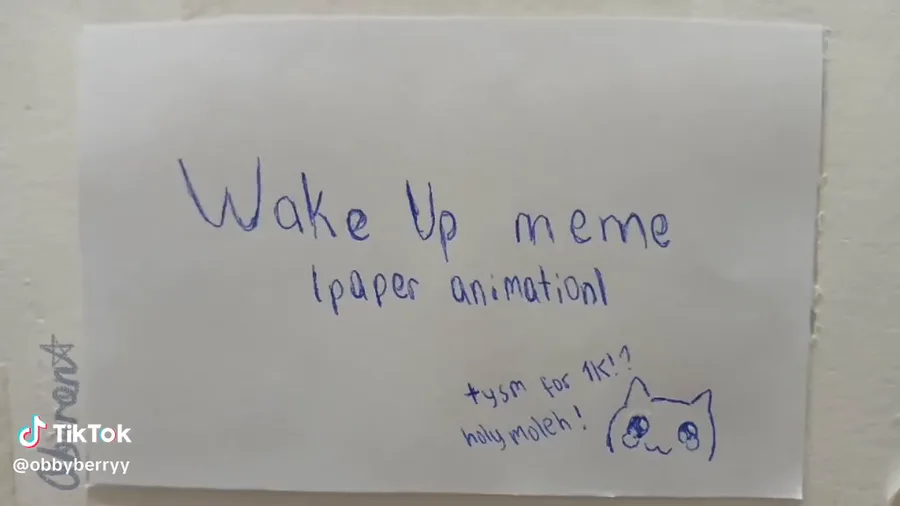 Wake Up meme
|paper animation|
tysm for 1K!?
holy moleh!
TikTok
@obbyberryy